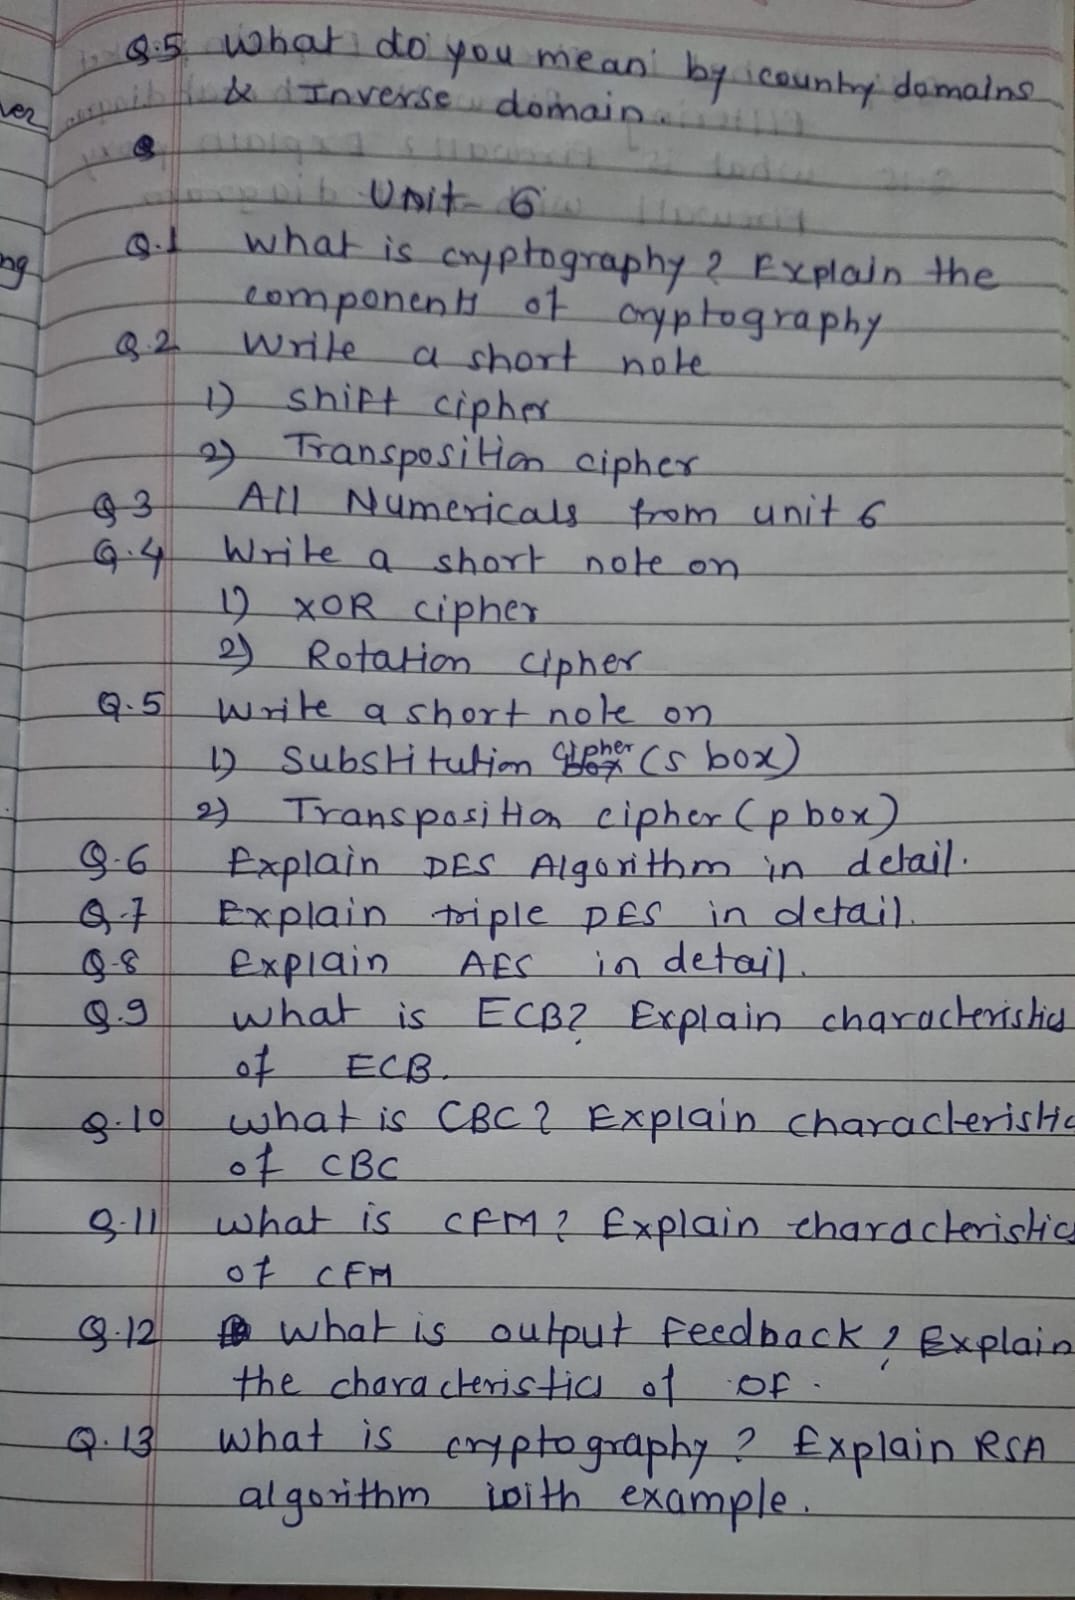 Q.5 What do you mean by country domains
& Inverse domain.
Q
Unit- 6
Q.1 What is cryptography? Explain the
components of cryptography
Q.2 Write a short note
1) shift cipher
2) Transposition cipher
Q 3 All Numericals from unit 6
Q.4 Write a short note on
1) XOR cipher
2) Rotation cipher
Q.5 Write a short note on
1) Substitution cipher (s box)
2) Transposition cipher (p box)
Q.6 Explain DES Algorithm in detail.
Q.7 Explain triple DES in detail.
Q.8 Explain AES in detail.
Q.9 What is ECB? Explain characteristics
of ECB.
Q.10 What is CBC? Explain characteristic
of CBC
Q.11 What is CFM? Explain characteristics
of CFM
Q.12 What is output Feedback? Explain
the characteristics of OF.
Q.13 What is cryptography? Explain RSA
algorithm with example.